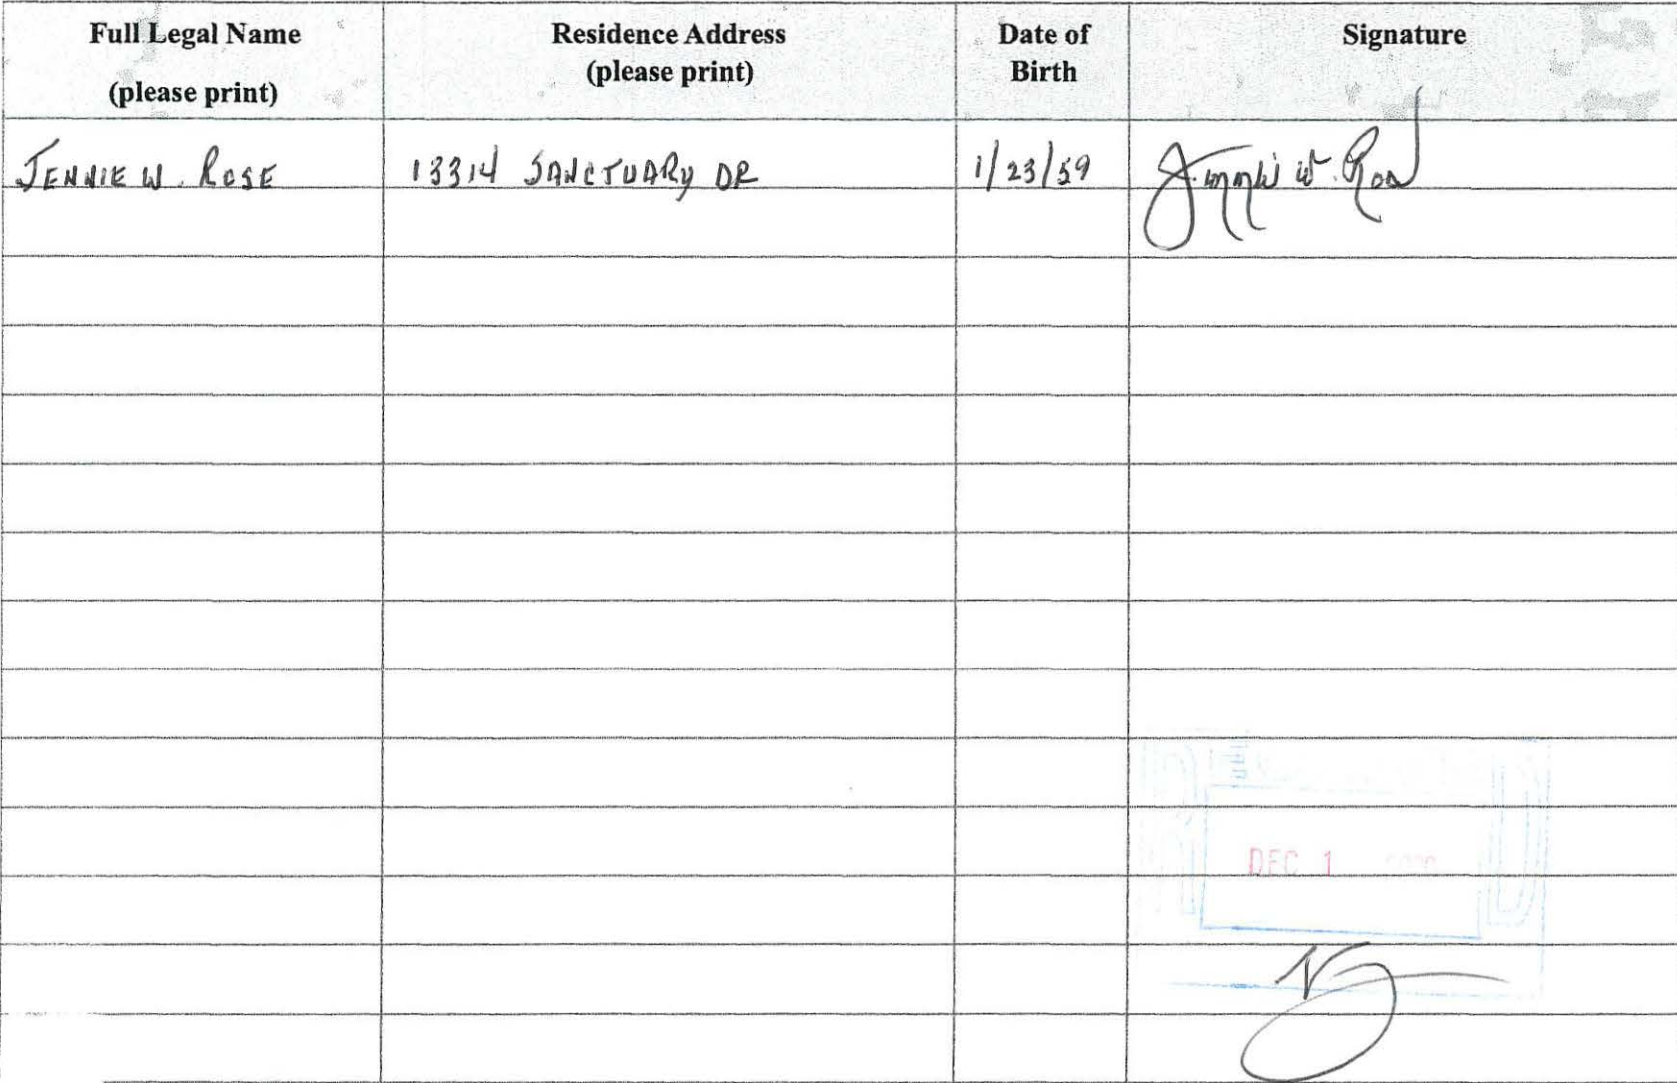 Full Legal Name
(please print)
Residence Address
(please print)
Date of
Birth
Signature
JENNIE W. ROSE
13314 SANCTUARY DR
1/23/59
DEC 1